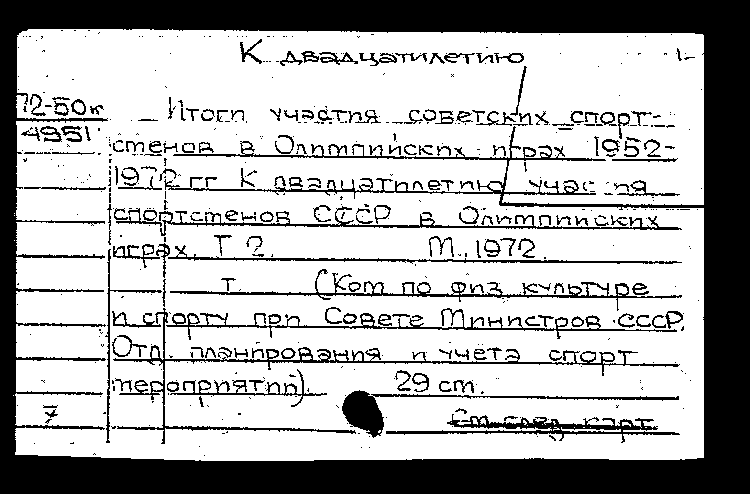 К двадцатилетию
72-50к
4951
Итоги участия советских спорт-
сменов в Олимпийских играх 1952-
1972 гг К двадцатилетию участия
спортсменов СССР в Олимпийских
играх. Т 2. М., 1972.
т (Ком по физ культуре
и спорту при Совете Министров СССР.
Отд. планирования и учета спорт
мероприятий). 29 см.
7
См. след. карт